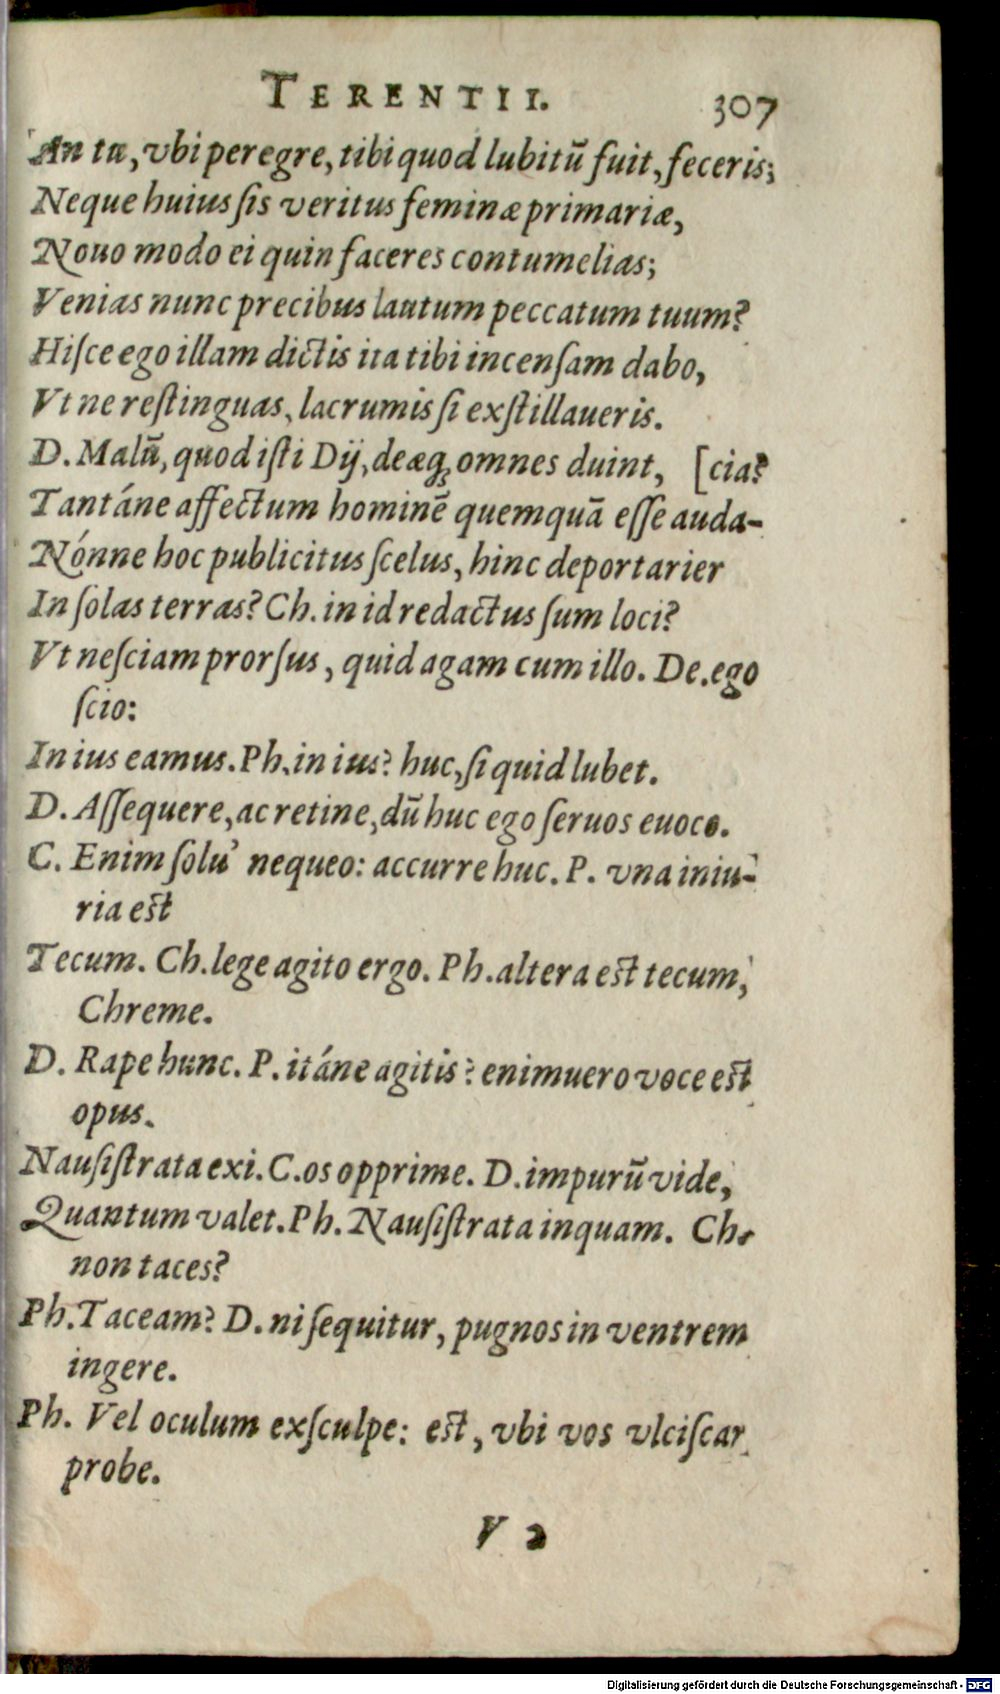 TERENTII. 307
An tu, vbi peregre, tibi quod lubitũ fuit, feceris;
Neque huius ſis veritus feminæ primariæ,
Nouo modo ei quin faceres contumelias;
Venias nunc precibus lautum peccatum tuum?
Hiſce ego illam dictis ita tibi incenſam dabo,
Vt ne reſtinguas, lacrumis ſi exſtillaueris.
D. Malũ, quod iſti Dij, deæq́; omnes duint, [cia?
Tantáne affectum hominẽ quemquã eſſe auda-
Nónne hoc publicitus ſcelus, hinc deportarier
In ſolas terras? Ch. in id redactus ſum loci?
Vt neſciam prorſus, quid agam cum illo. De. ego
ſcio:
In ius eamus. Ph. in ius? huc, ſi quid lubet.
D. Aſſequere, ac retine, dũ huc ego ſeruos euoco.
C. Enim ſolu' nequeo: accurre huc. P. vna iniu-
ria est
Tecum. Ch. lege agito ergo. Ph. altera est tecum,
Chreme.
D. Rape hunc. P. itáne agitis? enimuero voce est
opus.
Nauſiſtrata exi. C. os opprime. D. impurũ vide,
Quantum valet. Ph. Nauſiſtrata inquam. Ch.
non taces?
Ph. Taceam? D. ni ſequitur, pugnos in ventrem
ingere.
Ph. Vel oculum exſculpe: est, vbi vos vlciſcar
probe.
V 2
Digitalisierung gefördert durch die Deutsche Forschungsgemeinschaft - DFG